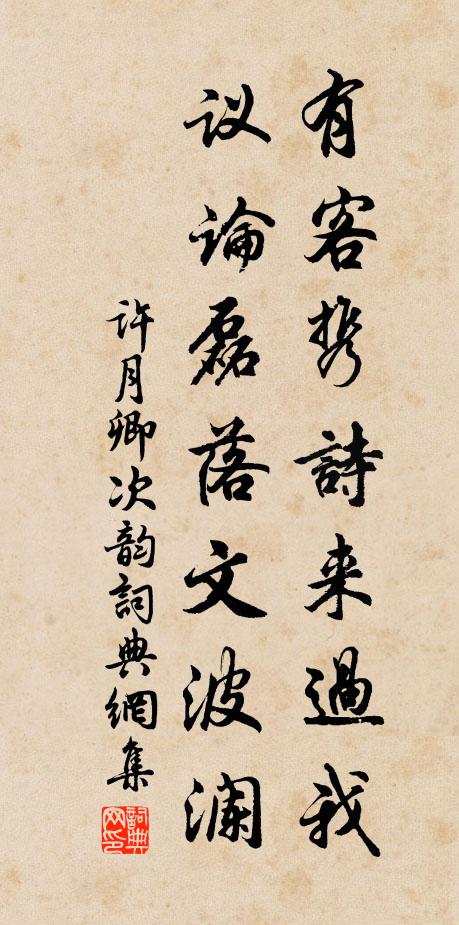 有客携詩来過我
议論磊落文波澜
许月卿次韵詞典網集
詞典网印